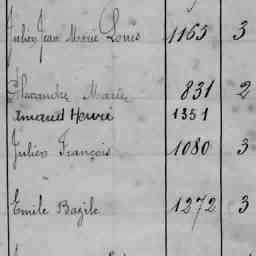 Julien Jean Marie Louis 1165 3
Alexandre Marie 831 2
Arnaud Henri 1351
Julien François 1080 3
Emile Bazile 1272 3